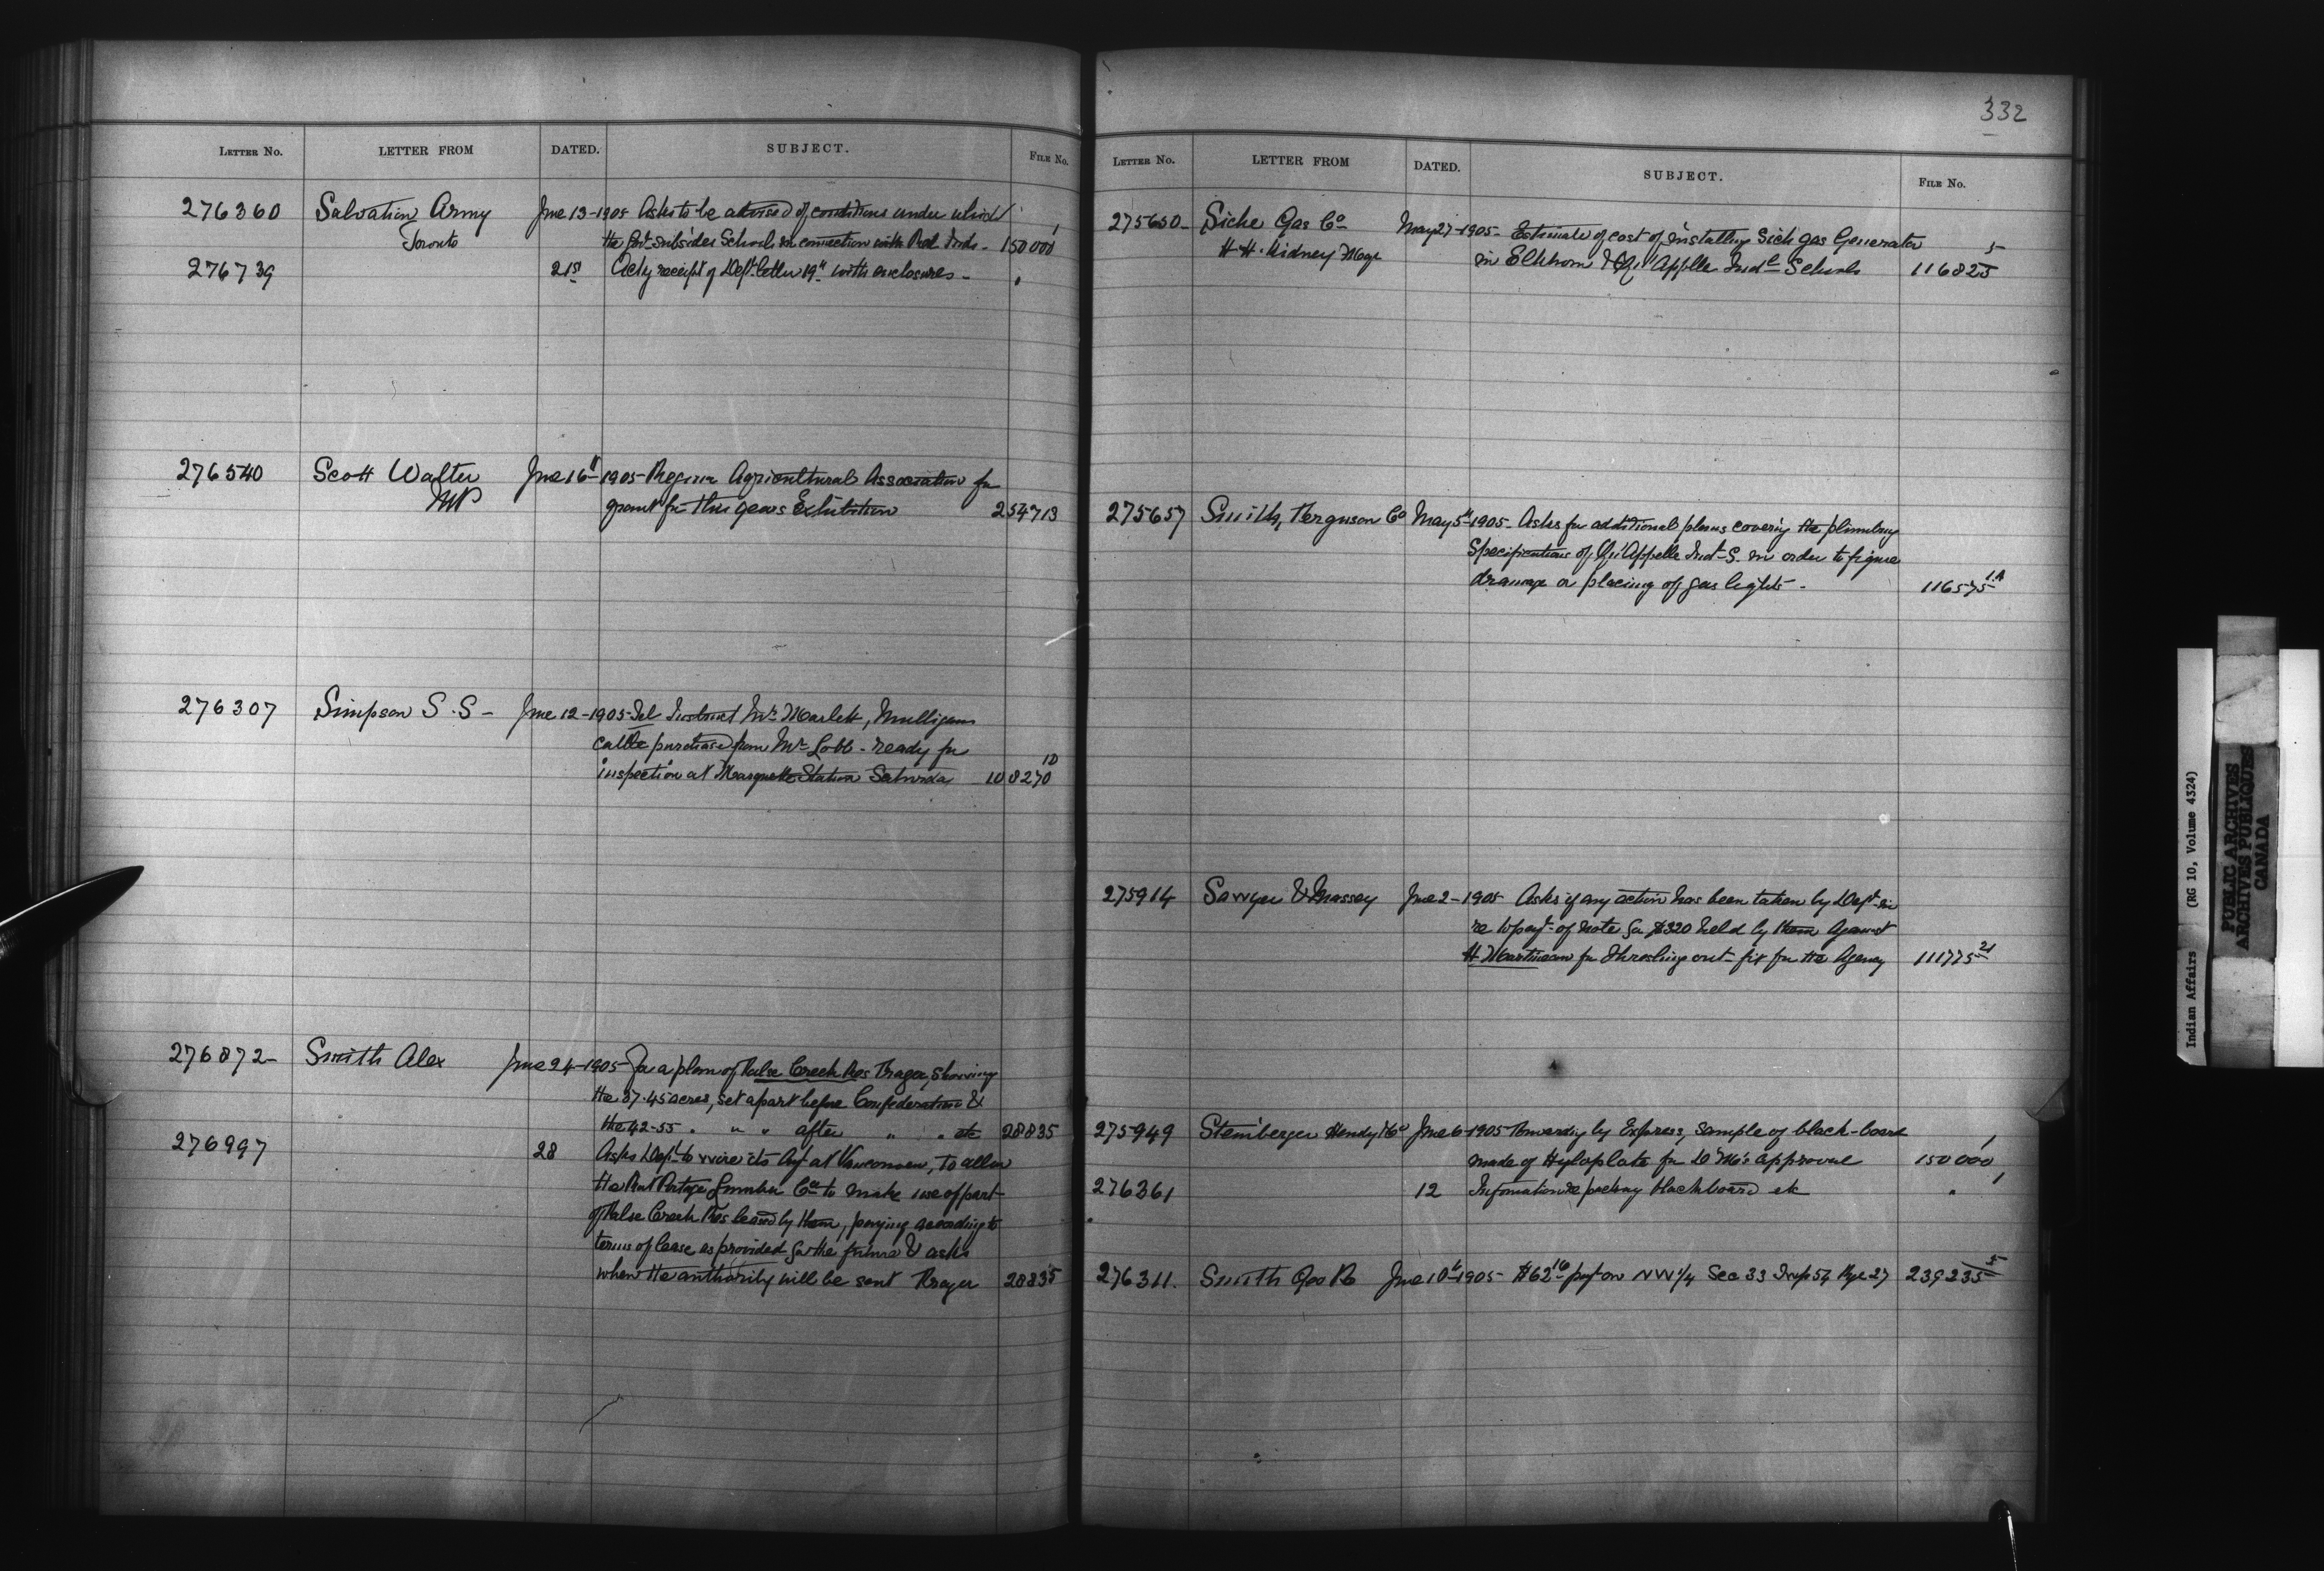 LETTER No. LETTER FROM DATED. SUBJECT. FILE No.
276360 Salvation Army June 13-1905 Asks to be advised of conditions under which
Toronto the Govt subsides Schools in connection with Red Inds - 150000 1
276739 21st Ackg receipt of Dept letter 19th with enclosures -
276540 Scott Walter June 16th 1905 - Regina Agricultural Association for
MP grant for this years Exhibition 254713
276307 Simpson S.S - June 12-1905 - Tel Instruct Mr Marlett, Mulligans
cattle purchased from Mr Lobb - ready for
inspection at Marquette Station Saturday - 108270 1D
276872 - Smith Alex June 24-1905 - For a plan of False Creek Res showing
the 37.45 acres, set apart before Confederation &
the 42-55 " " " after " " etc 28835
276997 28 Asks Dept to wire its Agt at Vancouver, to allow
the Rat Portage Lumber Co to make use of part
of False Creek Res leased by them, paying according to
terms of lease as provided for the future & asks
when the authority will be sent 28835
332
LETTER No. LETTER FROM DATED. SUBJECT. FILE No.
275650 - Siche Gas Co May 27-1905 - Estimate of cost of installing Sich gas Generator
H.H. Kidney Magr in Elkhorn & Qu'Appelle Indl Schools 116825 5
275657 Smith, Ferguson Co May 5th 1905 - Asks for additional plans covering the plumbing
Specifications of Qu'Appelle Ind-S. in order to figure
drainage or placing of gas lights - 116575 1A
275914 Sawyer & Massey June 2-1905 Asks if any action has been taken by Dept in
re to payt of note for $320 held by them against
H Martineau for threshing out-fit for the Agency 111775 21
275949 Steinberger Hendry & Co June 6-1905 Forwardig by Express, sample of black-board
made of Hyloplate for approval 150000 1
276361 12 Information re packing blackboard etc " 1
276311. Smith Geo R June 10th 1905 - $62 16 payt on NW 1/4 Sec 33 Twp 54 Rge 27 239235 5
Indian Affairs (RG 10, Volume 4324)
PUBLIC ARCHIVES
ARCHIVES PUBLIQUES
CANADA